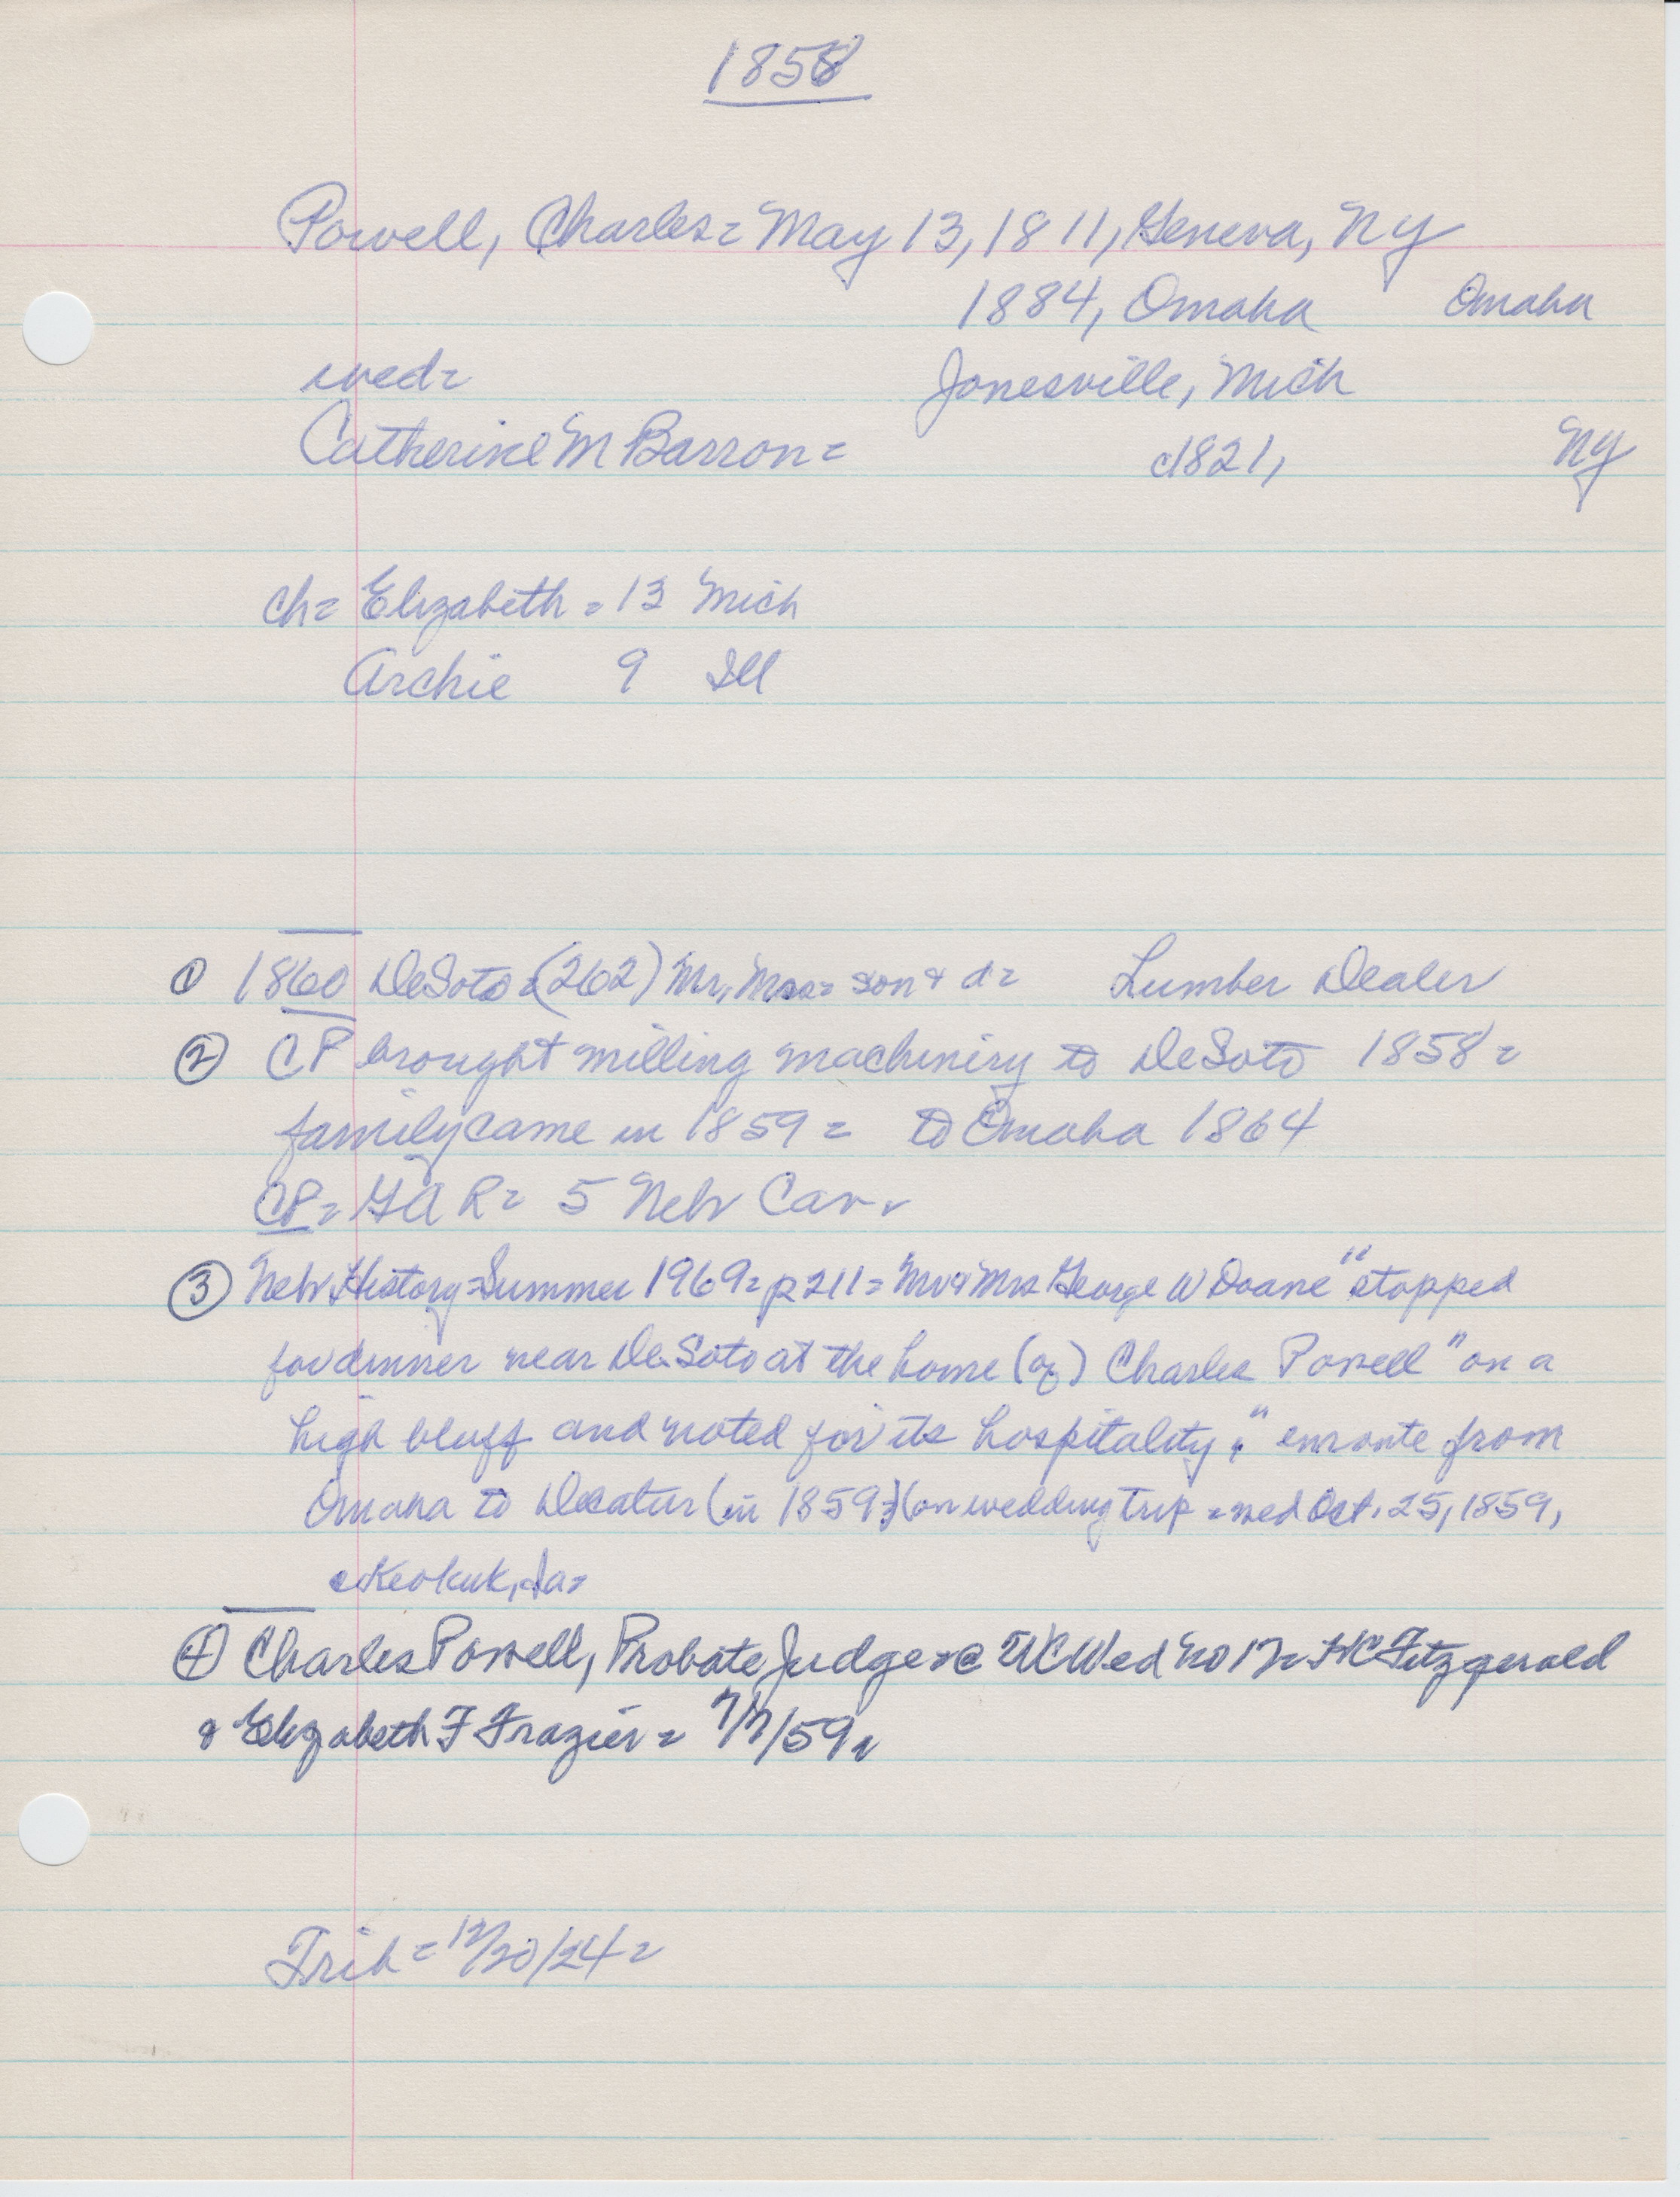 1858
Powell, Charles = May 13, 1811, Geneva, NY
1884, Omaha Omaha
wed =
Jonesville, Mich
Catherine M Barron = c1821, NY
ch = Elizabeth = 13 Mich
Archie 9 Ill
① 1860 DeSoto = (262) Mr, Mrs = son & d = Lumber Dealer
② CP brought milling machinery to DeSoto 1858 =
family came in 1859 = to Omaha 1864
CP = GAR = 5 Nebr Cav.
③ Nebr History = Summer 1969 = p 211 = Mr & Mrs George W Doane "stopped
for dinner near DeSoto at the home (of) Charles Powell "on a
high bluff and noted for its hospitality," enroute from
Omaha to Decatur (in 1859) (on wedding trip = wed Oct. 25, 1859,
Keokuk, Ia =
④ Charles Powell, Probate Judge = @ WC Wed No 17 = HC Fitzgerald
& Elizabeth F Frazier = 7/7/59
Trib = 12/20/24 =